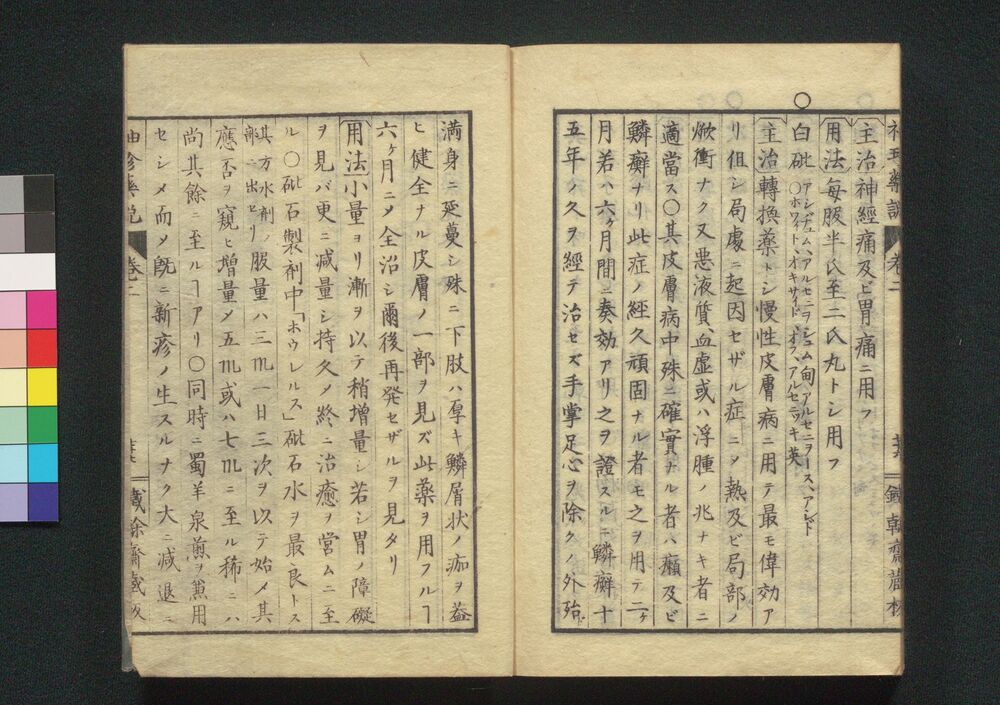 主治神經痛及ビ胃痛ニ用フ
用法毎服半氏至二氏丸トシ用フ
白砒
アシヂュム、アルセニヲシュム甸 アルセニヲース、アシド
〇ホワイト、オキサイド、オフ、アルセニッキ英
主治轉換薬トシ慢性皮膚病ニ用テ最モ偉効ア
リ但シ局處ニ起因セザル症ニ乄熱及ビ局部ノ
焮衝ナク又悪液質、血虚或ハ浮腫ノ兆ナキ者ニ
適當ス〇其皮膚病中殊ニ確實ナル者ハ癩及ビ
鱗癬ナリ此症ノ經久頑固ナル者モ之ヲ用テ二ヶ
月若ハ六ヶ月間ニ奏効アリ之ヲ證スルニ鱗癬十
五年ノ久ヲ經テ治セズ手掌足心ヲ除クノ外殆
満身ニ延蔓シ殊ニ下肢ハ厚キ鱗屑状ノ痂ヲ蓋
ヒ健全ナル皮膚ノ一部ヲ見ズ此薬ヲ用フルヿ
六ヶ月ニ乄全治シ爾後再發セザルヲ見タリ
用法小量ヨリ漸ヲ以テ稍増量シ若シ胃ノ障礙
ヲ見バ更ニ減量シ持久乄終ニ治癒ヲ営ムニ至
ル〇砒石製剤中「ホウレルス」砒石水ヲ最良トス
其方水剤ノ
部ニ出セリ
服量ハ三♏一日三次ヲ以テ始メ其
應否ヲ窺ヒ増量乄五♏或ハ七♏ニ至ル稀ニハ
尚其餘ニ至ルヿアリ〇同時ニ蜀羊泉煎ヲ兼用
セシメ而乄既ニ新疹ノ生スルナク大ニ減退ニ
袖珍藥説 巻二